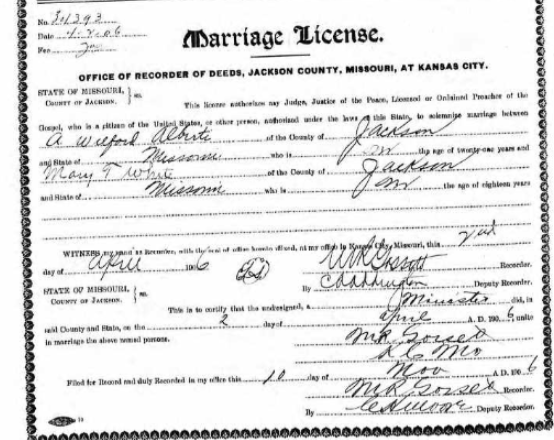 No.
Date 4-2-06
Fee
Marriage License.
OFFICE OF RECORDER OF DEEDS, JACKSON COUNTY, MISSOURI, AT KANSAS CITY.
STATE OF MISSOURI,
COUNTY OF JACKSON. } ss.
This license authorizes any Judge, Justice of the Peace, Licensed or Ordained Preacher of the
Gospel, who is a citizen of the United States, or other person, authorized under the laws of this State, to solemnize marriage between
A Wilford Alberte of the County of Jackson
and State of Missouri who is the age of twenty-one years and
Mary T White of the County of Jackson
and State of Missouri who is the age of eighteen years
WITNESS my hand as Recorder, with the seal of office hereto affixed, at my office in Kansas City, Missouri, this 2nd
day of April 1906 Recorder.
STATE OF MISSOURI,
COUNTY OF JACKSON. } ss.
By Deputy Recorder.
This is to certify that the undersigned, a Minister did, in
said County and State, on the 2 day of April A. D. 1906, unite
in marriage the above named persons.
K C Mo
Filed for Record and duly Recorded in my office this 10 day of A. D. 1906
Recorder.
By Deputy Recorder.